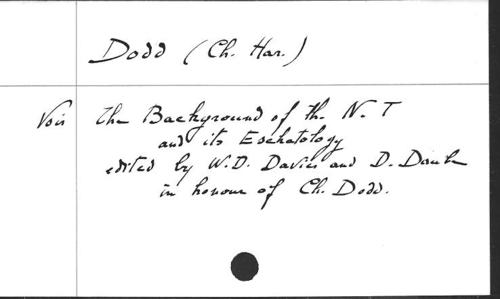 Dodd (Ch. Har.)
Voir The Background of the N. T
and its Eschatology
edited by W.D. Davies and D. Daube
in honour of Ch. Dodd.